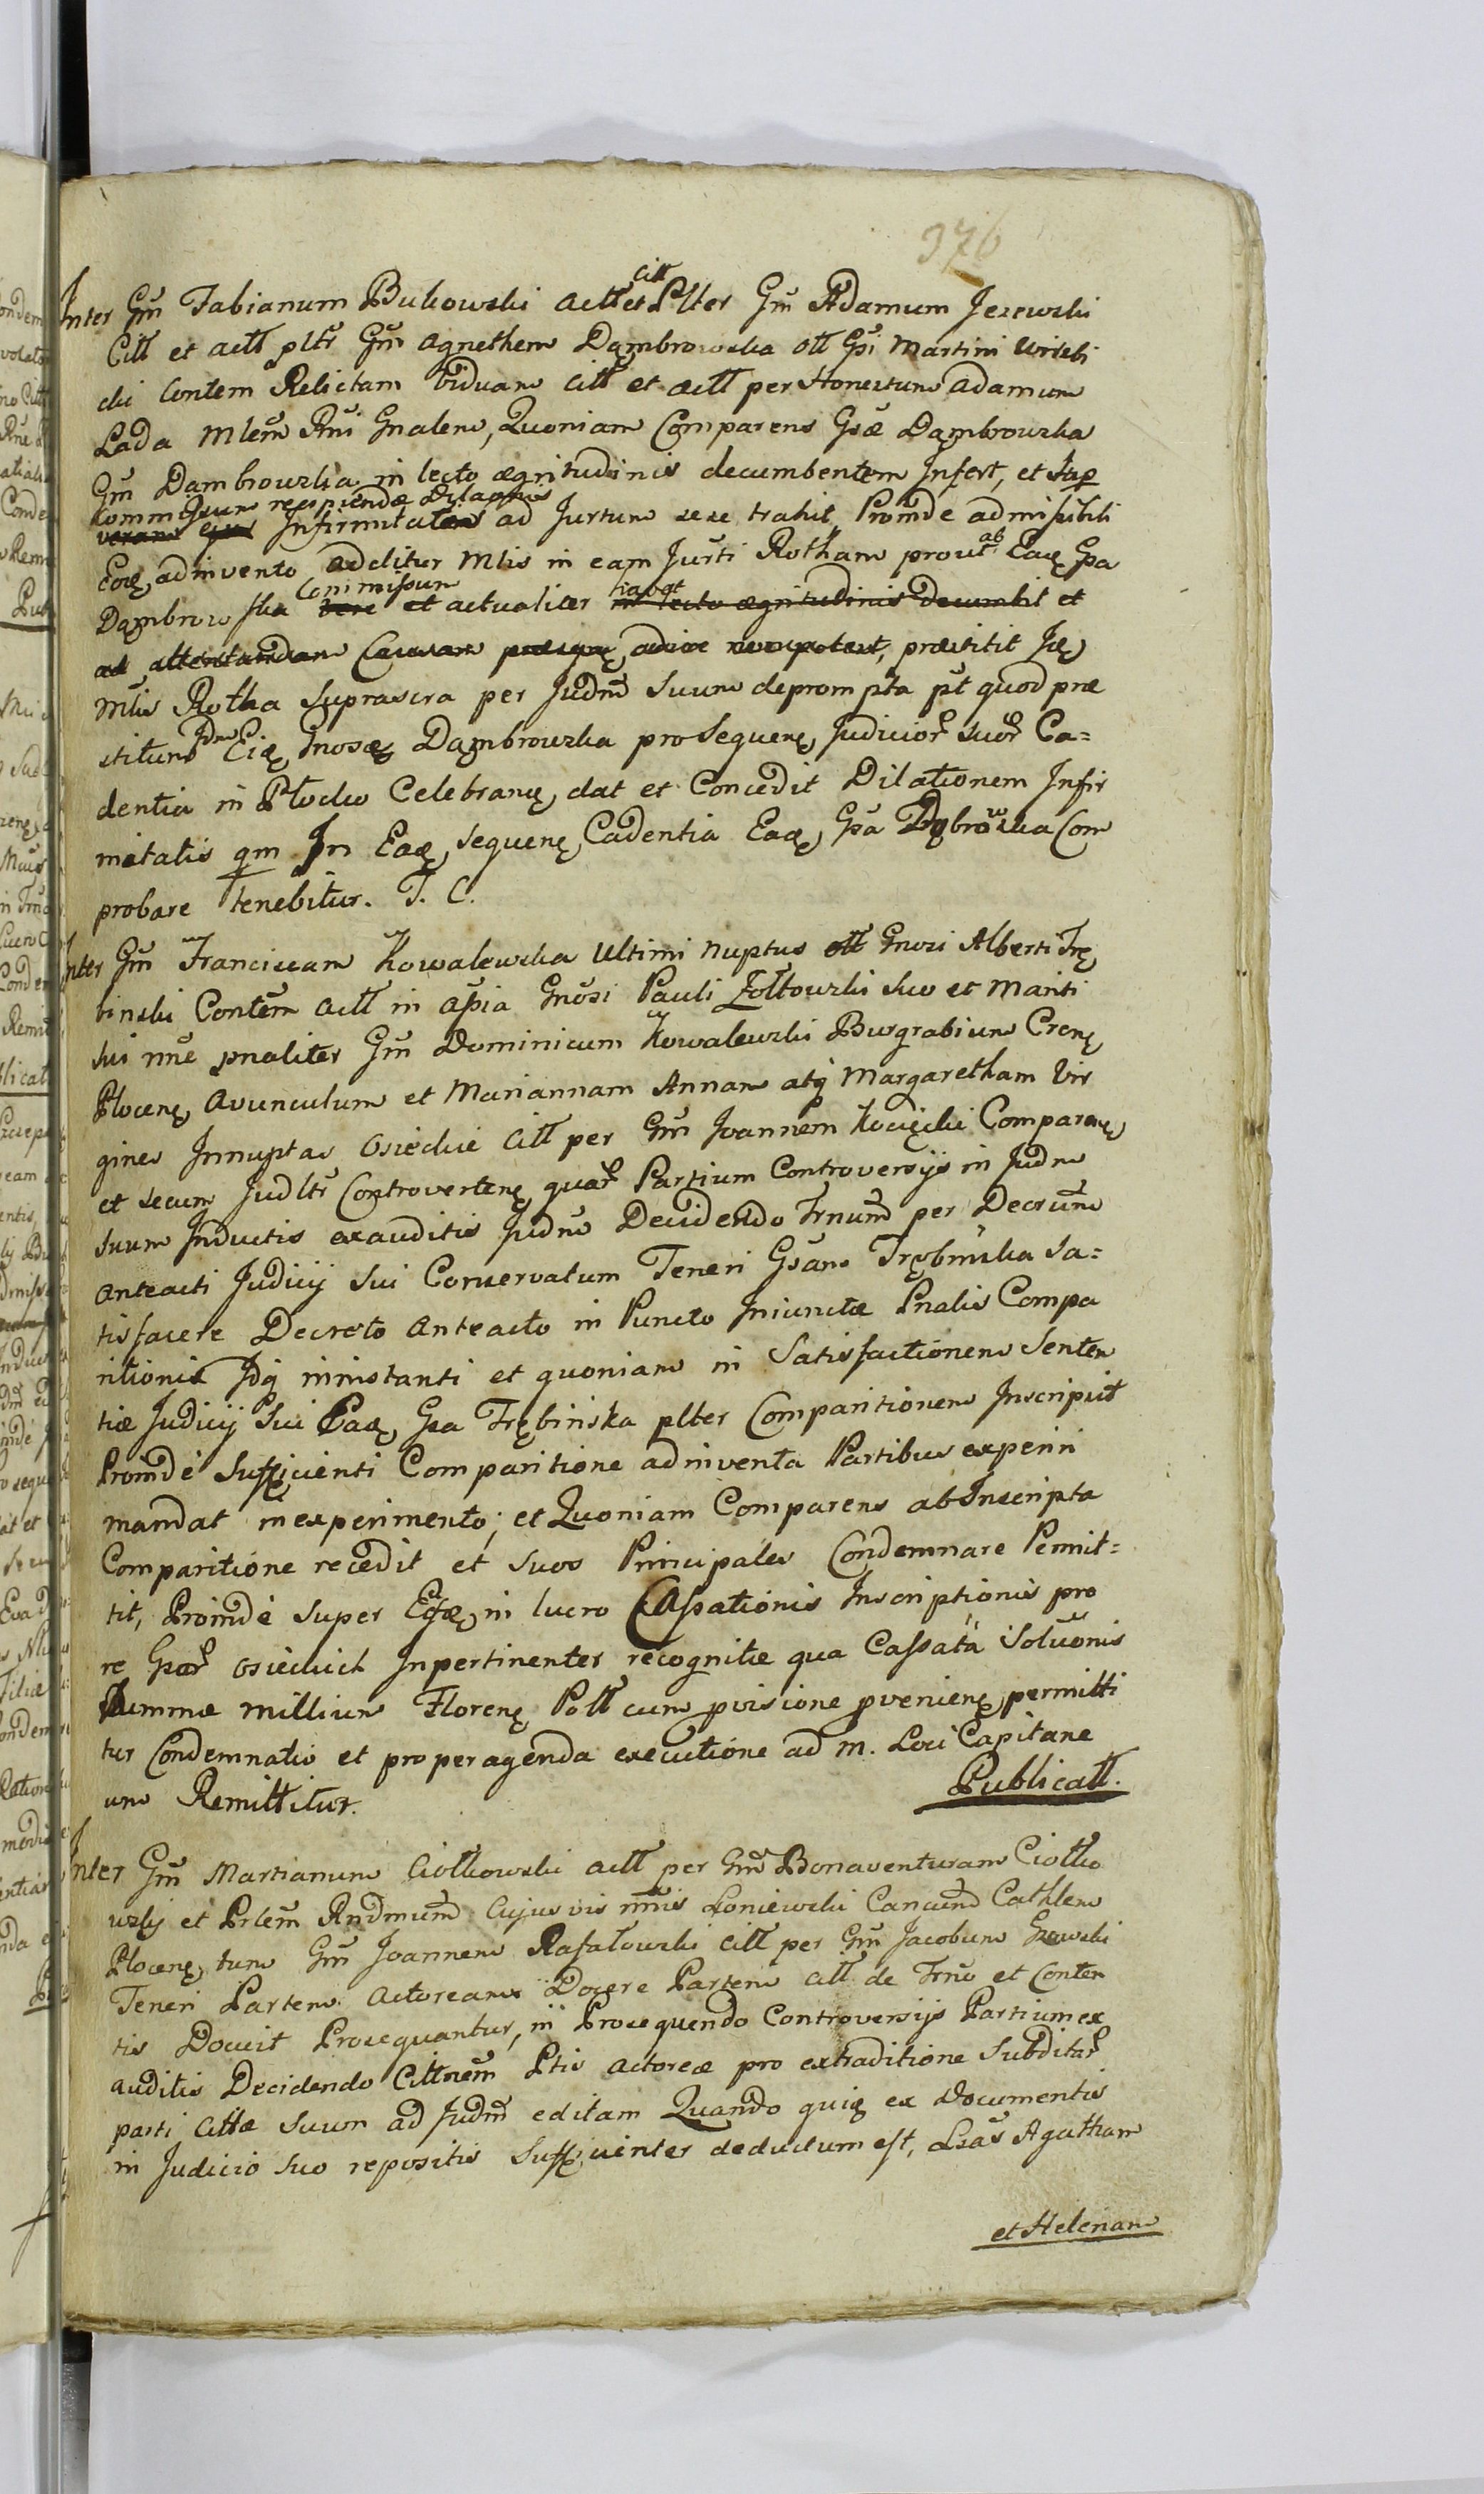 376
Inter Gm̃ Fabianum Bukowski actt et citt Plter Gm̃ Adamum Jezewski
Citt et actt pltr Gm̃ Agnethem Dąmbrowska ott Gsi Martini Uriszbi
cki Contem Relictam Viduam citt et actt per Honestum Adamum
Lada Mlem Rni Gnalem, Quoniam Comparens Gsæ Dąmbrowska
Gm̃ Dąmbrowska in lecto ægritudinis decumbentem Infert, et sup
Commissum recipiendæ Dilaonis
veram Infirmitatem ad Jurtum sese trahit Proinde admissibili
Eoꝫ adinvento adelitur Mlis in eam Jurti Rotham prout ab Eaꝫ Gsa
Dąmbrowska Commissum et actualiter habet in lecto ægritudinis decumbit et
ad attentandam Causam adire non potest, præstitit Jꝫ
Mlis Rotha suprascra per Judm suum deprompta pt quod præ
stitum Jdm Eiꝫ Gnosæ Dąmbrowska pro sequenꝫ Judicior suor Ca=
dentia in Płocko Celebranꝫ dat et Concedit Dilationem Infir
mitatis qm In Eaꝫ sequenꝫ Cadentia Eaꝫ Gsa Dąbrowska Com
probare tenebitur. T. C.
Inter Gm̃ Franciscam Kowalewska Ultimi Nuptus ott Gnosi Alberti Trę
binski Contem actt in apia Gnosi Pauli Zołtowski suo et Mariti
sui nne pnaliter Gm̃ Dominicum Kowalewski Burgrabium Crenꝫ
Plocenꝫ Avunculum et Mariannam Annam atq Margaretham Vir
gines Innuptas Osieckie citt per Gm̃ Joannem Kocięcki Comparenꝫ
et secum Judltr Controvertenꝫ quar Partium Controversijs in Judm
suum Inductis exauditis Judm Decidendo Trnum per Decrum
anteacti Judicij sui Conservatum Teneri Gsam Trębinska sa=
tisfacere Decreto anteacto in Puncto Iniunctæ Pnalis Compa
ritionis Jdq ininstanti et quoniam in Satisfactionem Senten
tiæ Judicij sui Eaꝫ Gsa Trębinska plter Comparitionem Inscripsit
Proinde Sufficienti Comparitione adinventa Partibus experiri
mandat in experimento; et Quoniam Comparens ab Inscripta
Comparitione recedit et suos Principales Condemnare Permit=
tit, Proinde super Eꝫ in lucro Cassationis Inscriptionis pro
re Gsar Osieckich Inpertinenter recognitæ qua Cassata Soluonis
Summæ Millium Florenꝫ Pott cum pvisione pvenienꝫ permitti
tur Condemnatio et pro peragenda executione ad M. Loci Capitane
um Remittitur.
Publicatt.
Inter Gm̃ Martianum Ciołkowski actt per Gm̃ Bonaventuram Ciołko
wski et Prlem Rndmum Cujusvis nnis Łoniewski Cancum Cathlem
Plocenꝫ tum Gm̃ Joannem Rafałowski citt per Gm̃ Jacobum
Teneri Partem Actoream Docere Partem citt de Trno et Conten
tis Docuit Prosequantur, in Prosequendo Controversijs Partium ex
auditis Decidendo Cittnem Ptis Actoreæ pro extraditione Subditar
parti cittæ suum ad Judm editam Quando quiꝫ ex Documentis
in Judicio suo repositis Sufficienter deductum est, Lsas Agatham
et Helenam